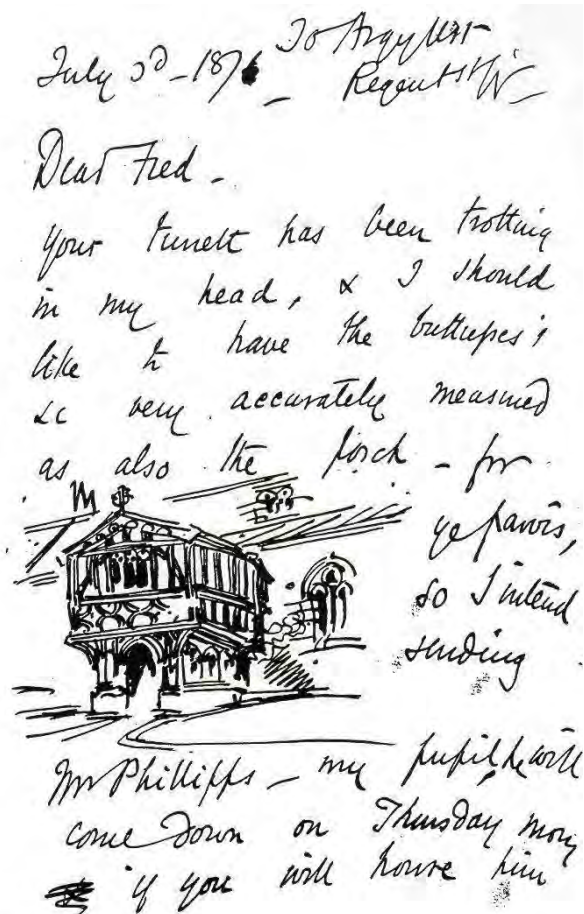 July 3d - 187
Argyll St
Regent St W
Dear Fred -
your turrett has been trotting
in my head, & I should
like to have the buttresses
&c very accurately measured
as also the porch - for
ye parvis,
so I intend
sending
Mr Phillipps - my pupil, he will
come down on Thursday morn
if you will house him